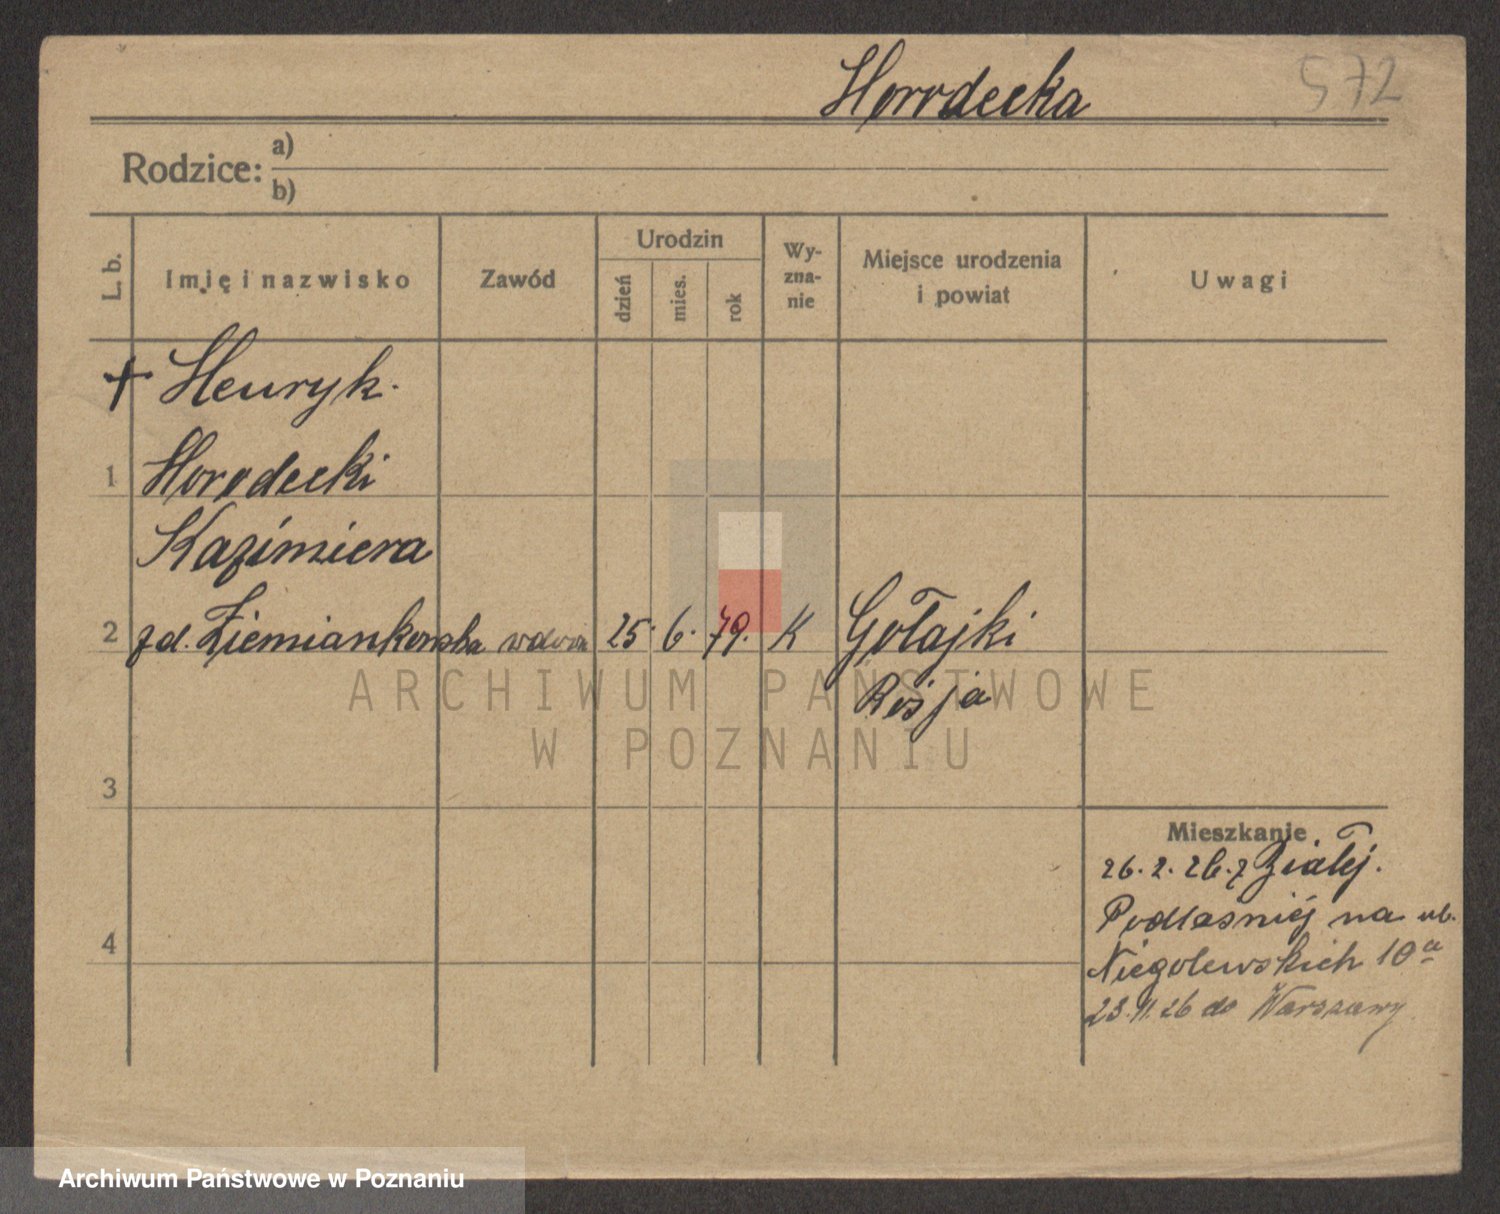 Horodecka 572
Rodzice: a)
b)
L. b. Imię i nazwisko Zawód Urodzin dzień mies. rok Wy-zna-nie Miejsce urodzenia i powiat Uwagi
+ Henryk
1 Horodecki
Kazimiera
2 zd. Ziemiankowska wdowa 25. 6. 79. K Gołajki
Rosja
ARCHIWUM PAŃSTWOWE
W POZNANIU
3
Mieszkanie
26. 2. 26. z Białej.
Podlaśniej na ul.
4 Niegolewskich 10a
23. 11. 26 do Warszawy
Archiwum Państwowe w Poznaniu